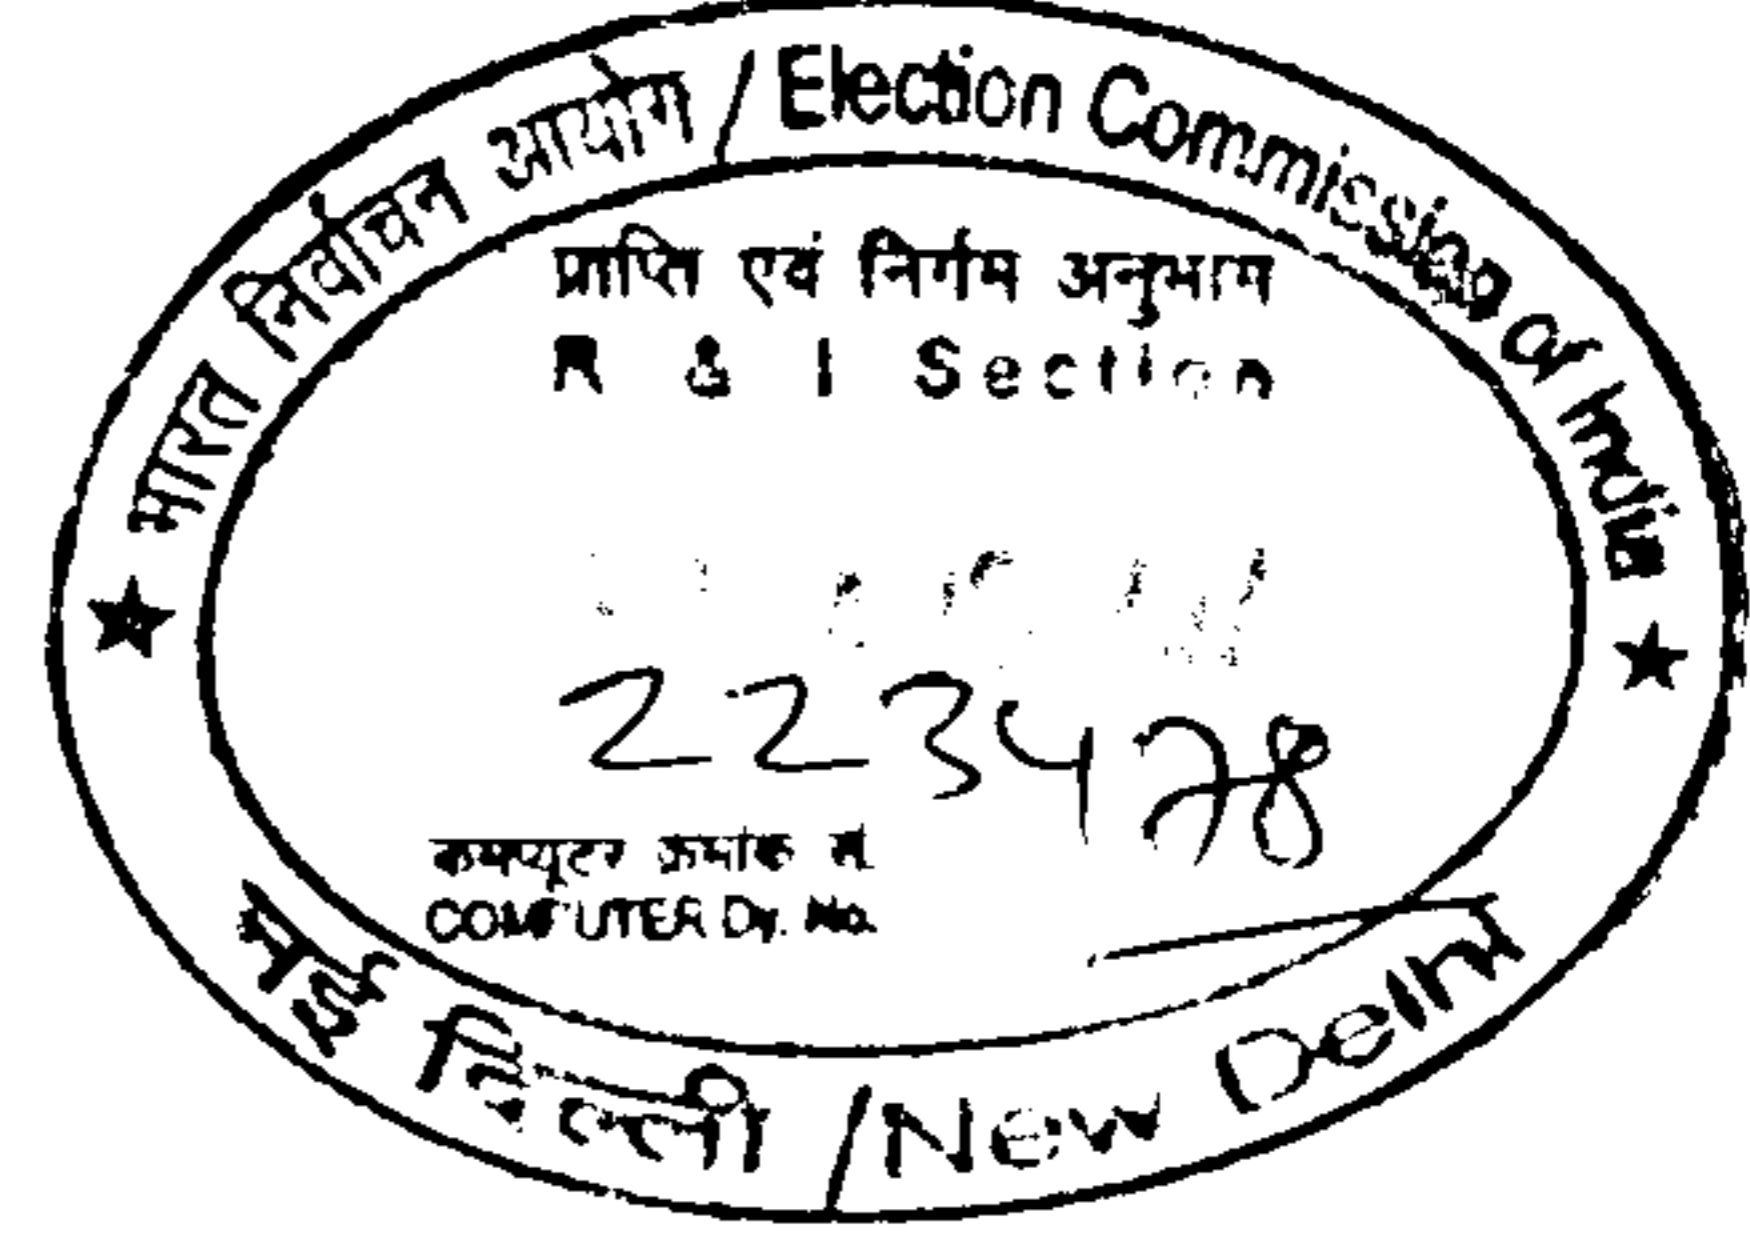 भारत निर्वाचन आयोग / Election Commission of India
प्राप्ति एवं निर्गम अनुभाग
R & I Section
223478
कम्प्यूटर क्रमांक सं.
COMPUTER Dy. No.
नई दिल्ली / New Delhi